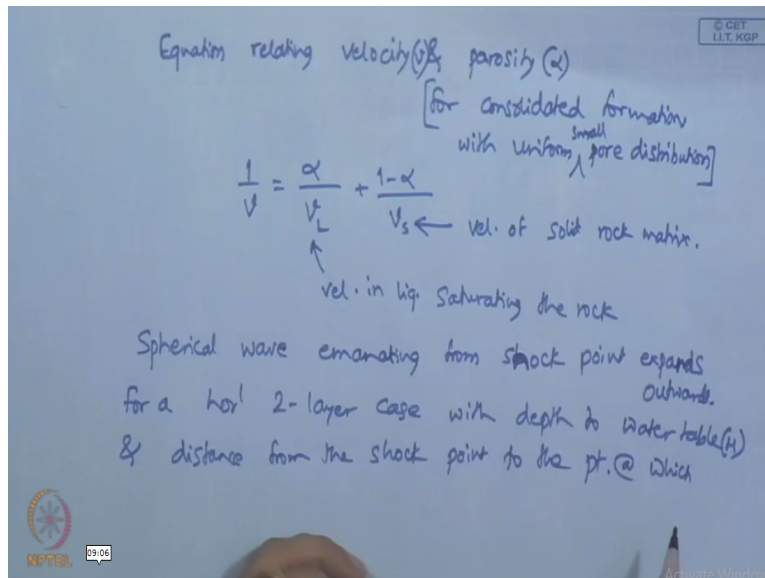 © CET
I.I.T. KGP
Equation relating velocity(v)& porosity (α)
[for consolidated formation
with uniform small pore distribution]
1/v = α/v_L + 1-α/v_s ← vel. of solid rock matrix.
vel. in liq. saturating the rock
Spherical wave emanating from shock point expands
outwards.
for a hor'l 2-layer case with depth to water table(H)
& distance from the shock point to the pt. @ which
NPTEL
09:06
Activate Windows